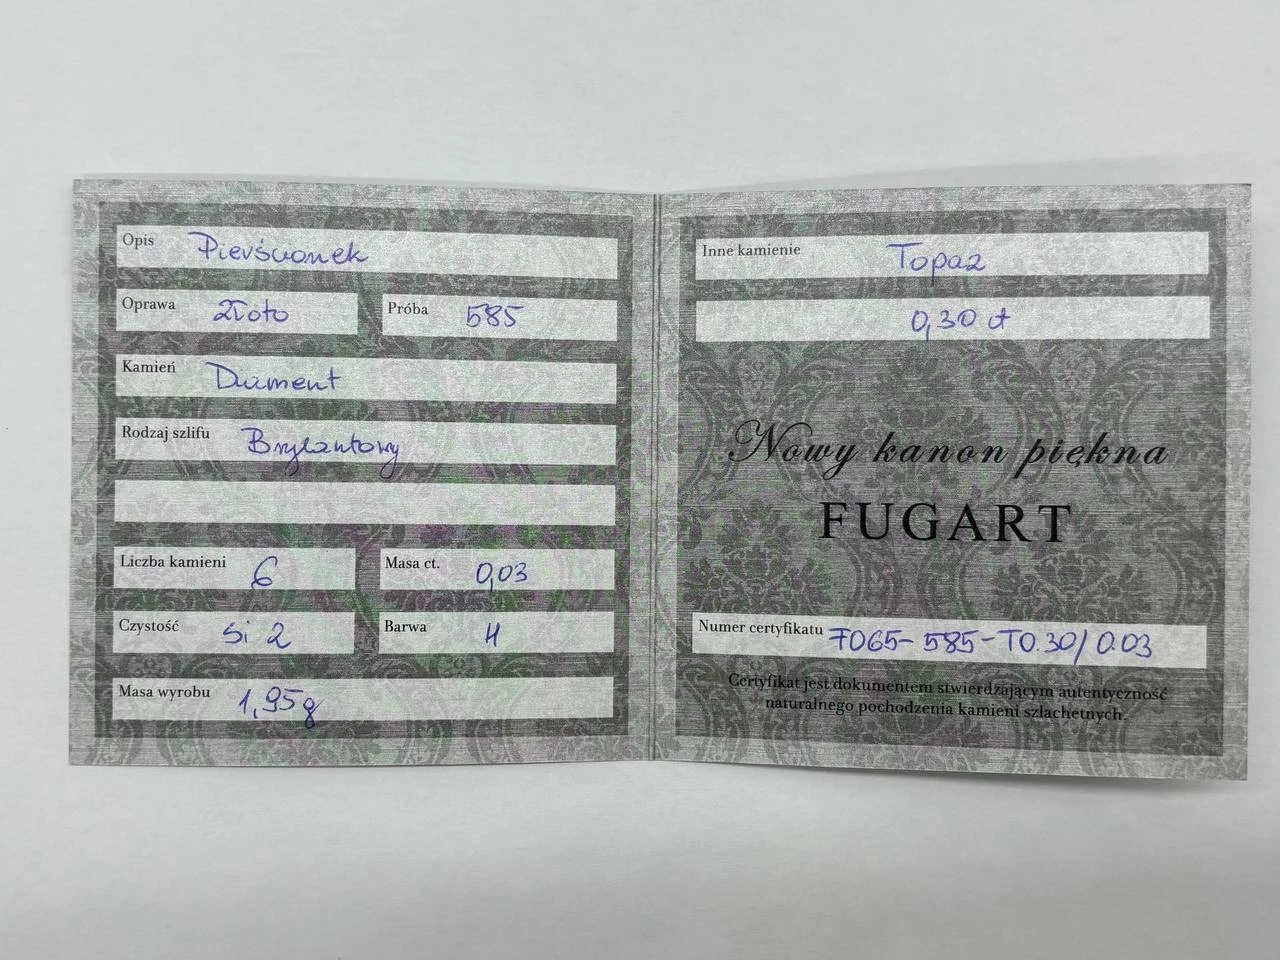 Opis Pierścionek
Oprawa Złoto Próba 585
Kamień Diament
Rodzaj szlifu Brylantowy
Liczba kamieni 6 Masa ct. 0,03
Czystość Si 2 Barwa H
Masa wyrobu 1,95g
Inne kamienie Topaz
0,30 ct
Nowy kanon piękna
FUGART
Numer certyfikatu 7065-585-T0.30/0.03
Certyfikat jest dokumentem stwierdzającym autentyczność
naturalnego pochodzenia kamieni szlachetnych.